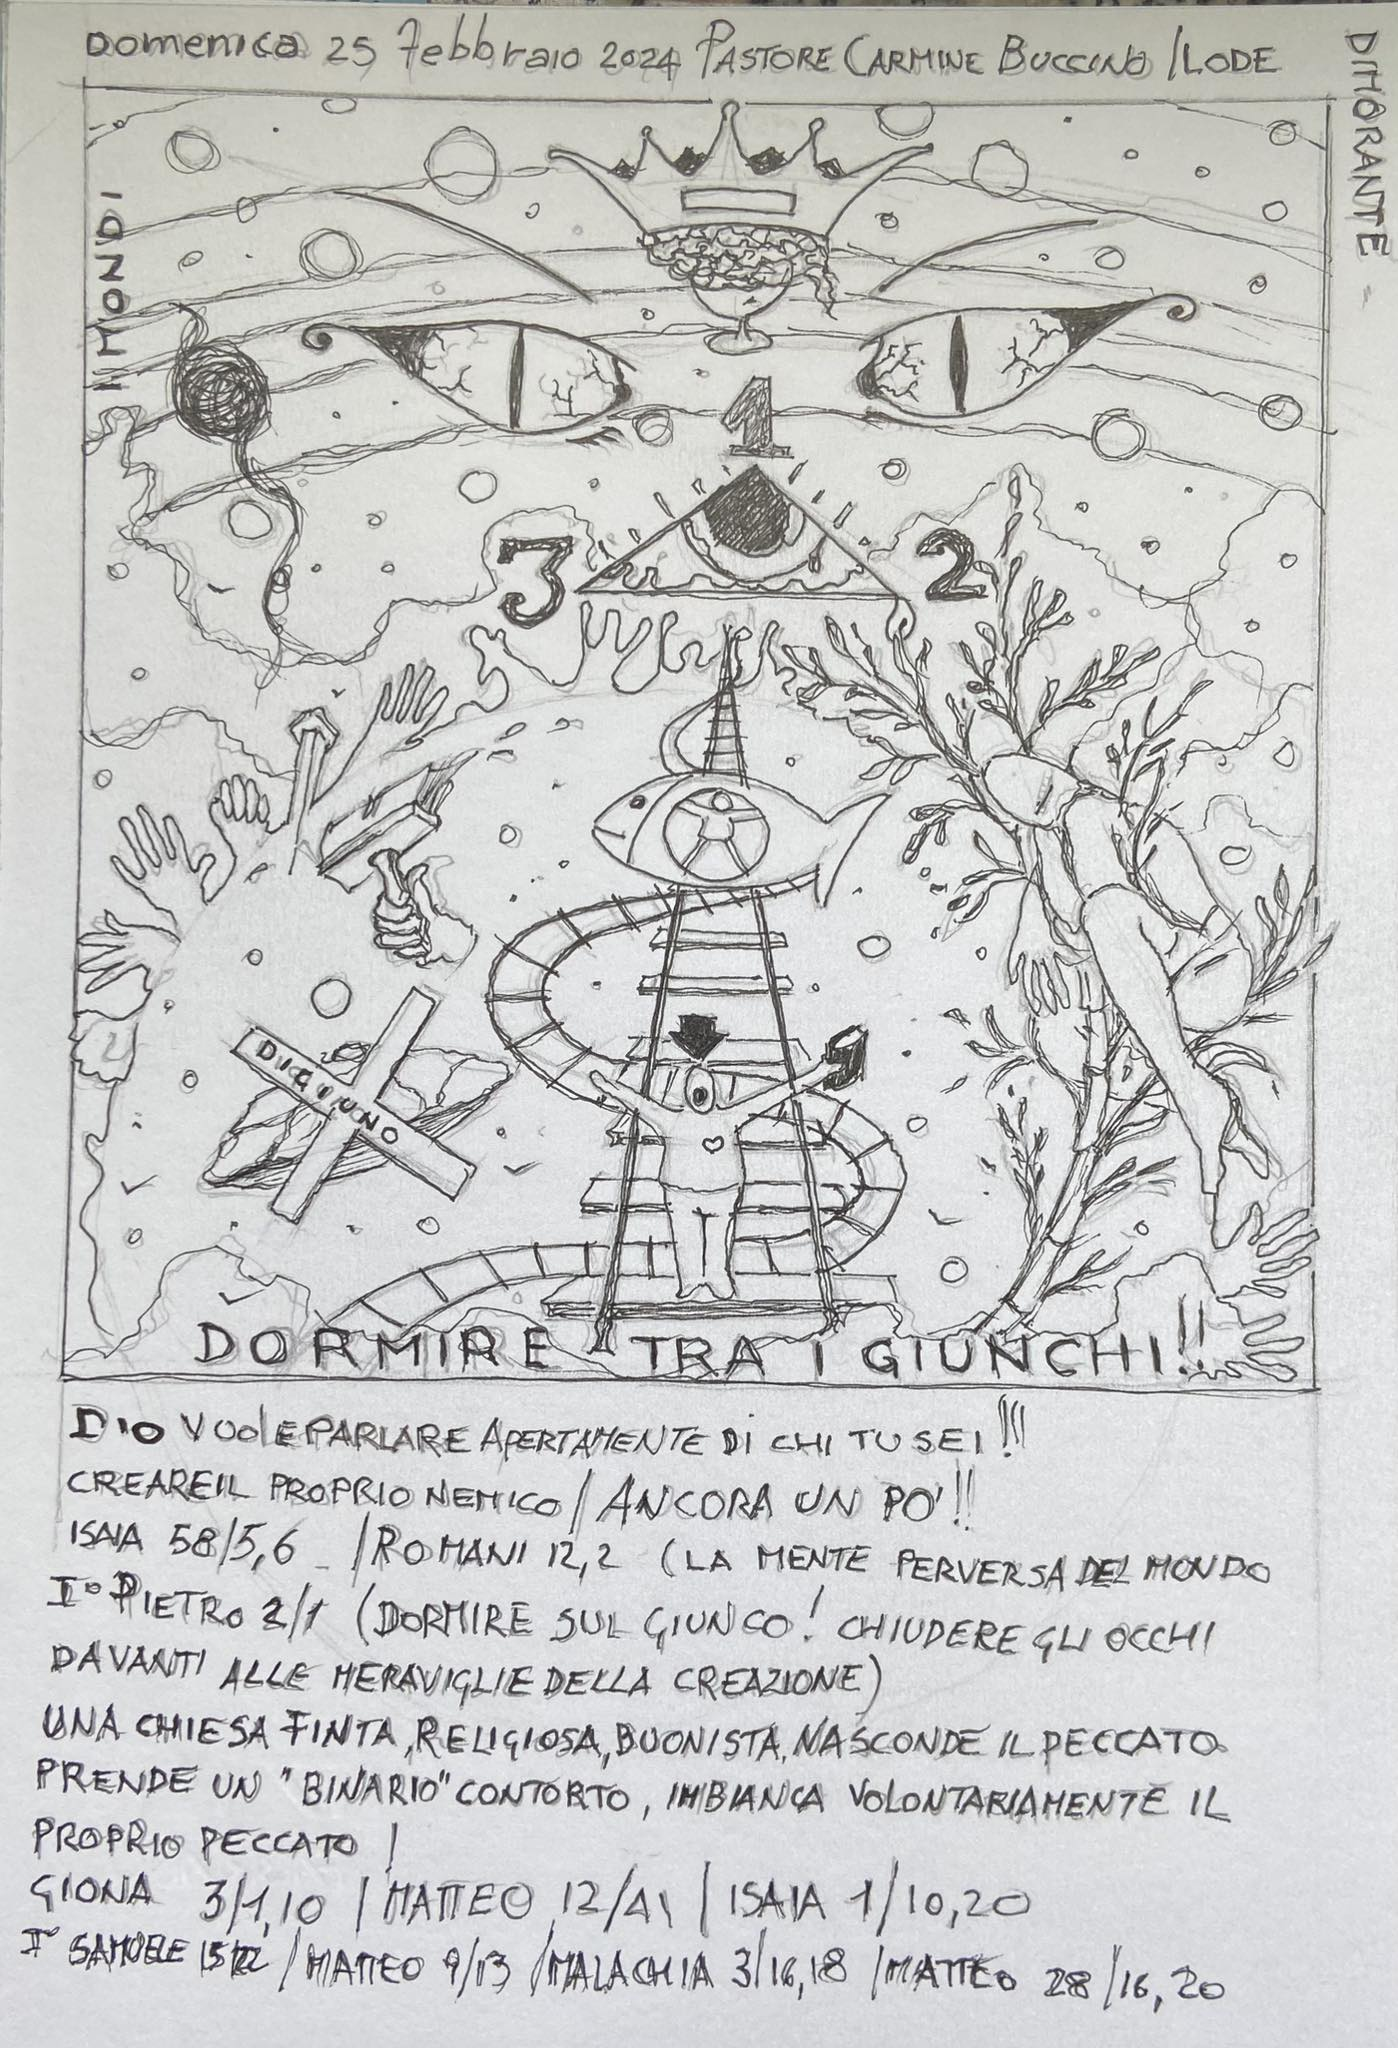 Domenica 25 Febbraio 2024 PASTORE CARMINE BUCCINO /LODE
DIMORANTE -
I MONDI
1
3 2
DIGIUNO
DORMIRE TRA I GIUNCHI!!
DIO VUOLE PARLARE APERTAMENTE DI CHI TU SEI!!!
CREARE IL PROPRIO NEMICO / ANCORA UN PO'!!
ISAIA 58/5,6 - /ROMANI 12,2 (LA MENTE PERVERSA DEL MONDO
I° PIETRO 2/1 (DORMIRE SUL GIUNCO! CHIUDERE GLI OCCHI
DAVANTI ALLE MERAVIGLIE DELLA CREAZIONE)
UNA CHIESA FINTA, RELIGIOSA, BUONISTA, NASCONDE IL PECCATO
PRENDE UN "BINARIO" CONTORTO, IMBIANCA VOLONTARIAMENTE IL
PROPRIO PECCATO!
GIONA 3/1,10 / MATTEO 12/41 / ISAIA 1/10,20
I° SAMUELE 15/22 / MATTEO 9/13 / MALACHIA 3/16,18 / MATTEO 28/16,20